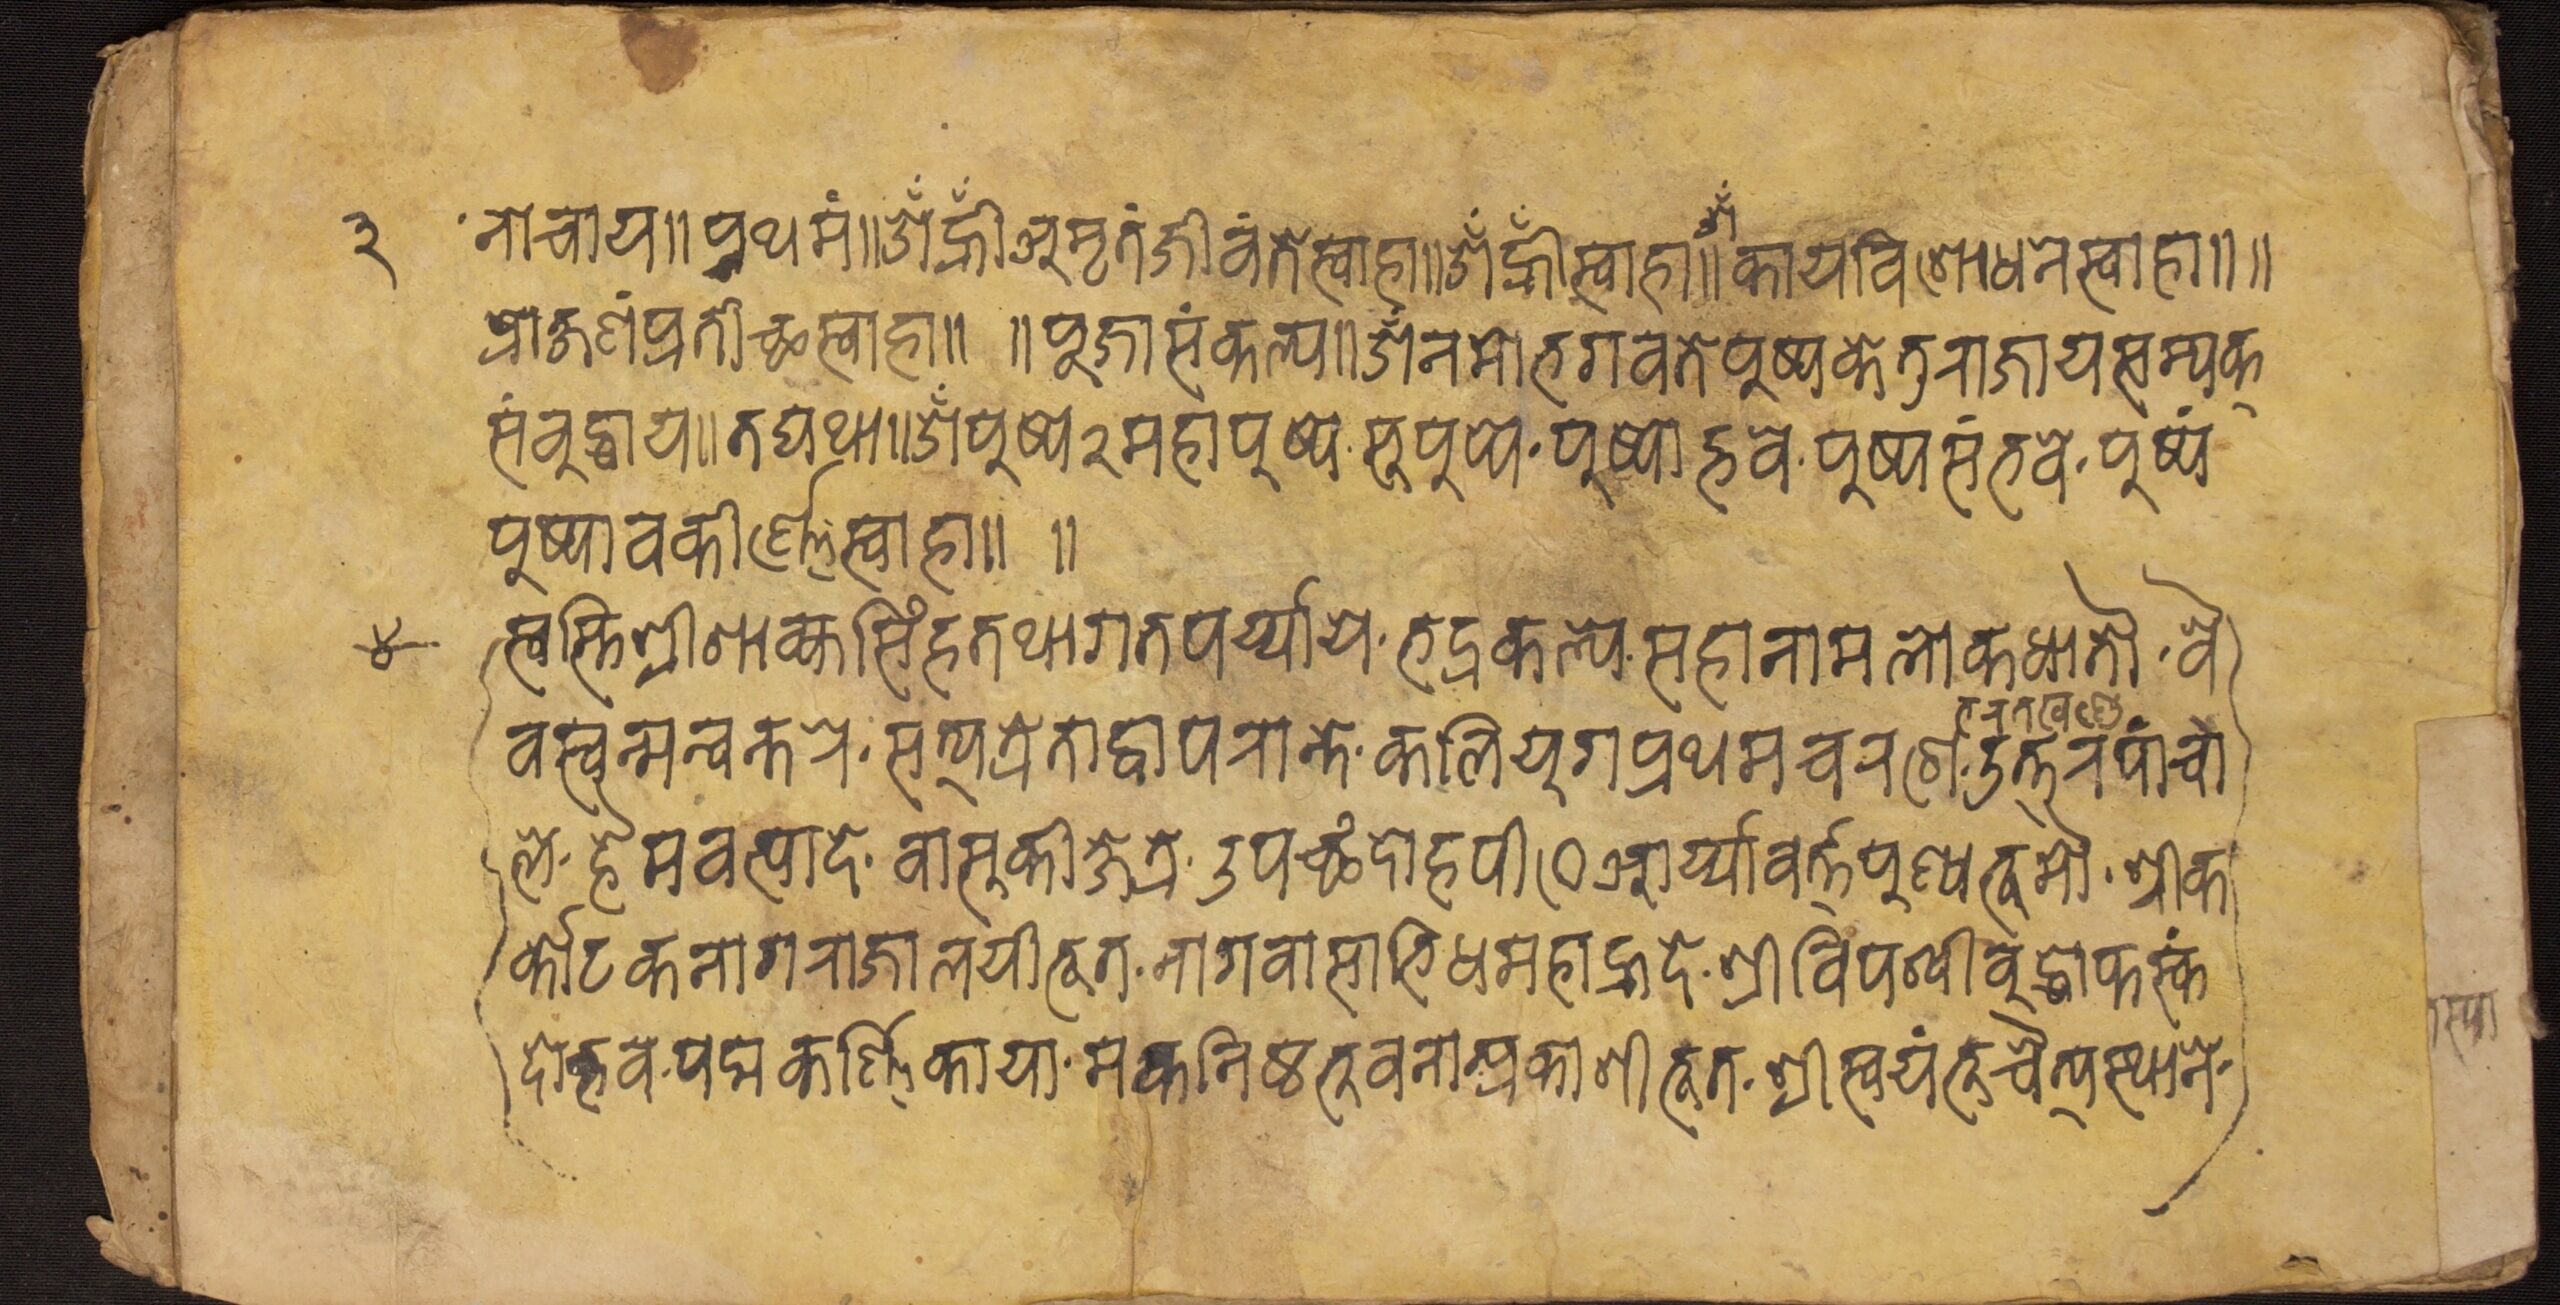 ३ नोचाय॥प्रथमं॥ॐह्रीँअमृतंजीवंतेस्वाहा॥ॐह्रीँस्वाहा॥ॐकायविशोधनेस्वाहा॥॥
प्रोक्षणंप्रतीच्छस्वाहा॥ ॥पूजासंकल्प॥ॐनमोभगवतेपुष्पकेतुराजायसम्यक्
संबुद्धाय॥तद्यथा॥ॐपुष्पे२महापुष्पे·सुपुष्पे·पुष्पोद्भवे·पुष्पसंभवे·पुष्पं
पुष्पावकीर्णेस्वाहा॥ ॥
४ स्वस्तिश्रीशाक्यसिंहतथागतपर्य्याये·भद्रकल्पे·सहानामलोकधातौ·वै
भरतखण्डे
वस्वतमन्वन्तरे·सत्यत्रेताद्वापरान्ते·कलियुगप्रथमचरणे·उत्तरपांचा
ले·हैमवत्पादे·वासुकीक्षेत्रे·उपच्छंदोहपीठेआर्य्यावर्त्तपुण्यभूमौ·श्रीक
र्कोटकनागराजालयीभूत·नागवासाभिधमहाह्रदे·श्रीविपश्वीबुद्धोकस्कं
दोद्भव·पद्मकर्णिकाया·मकनिष्ठभुवनात्प्रकाशीभूत·श्रीस्वयंभूचैत्यस्थाने·